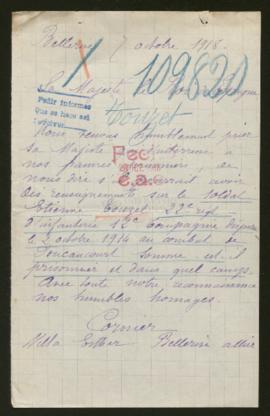 Bellerive 7 octobre 1918.
X
109820
Sa Majesté le Roi d'Espagne
Pedir informes
Que se haga una
Touzet
Nous venons humblement prier
sa Majesté
nos pauvres
nous dire s'il pourrait avoir
des renseignements sur le soldat
Etienne Touzet 22e regt
d'infanterie 12e Compagnie disparu
le 2 octobre 1914 au combat de
Foucaucourt Somme, est-il
prisonnier et dans quel camp.
Avec toute notre reconnaissance
nos humbles homages.
Cornier
Villa Esther Bellerive allier